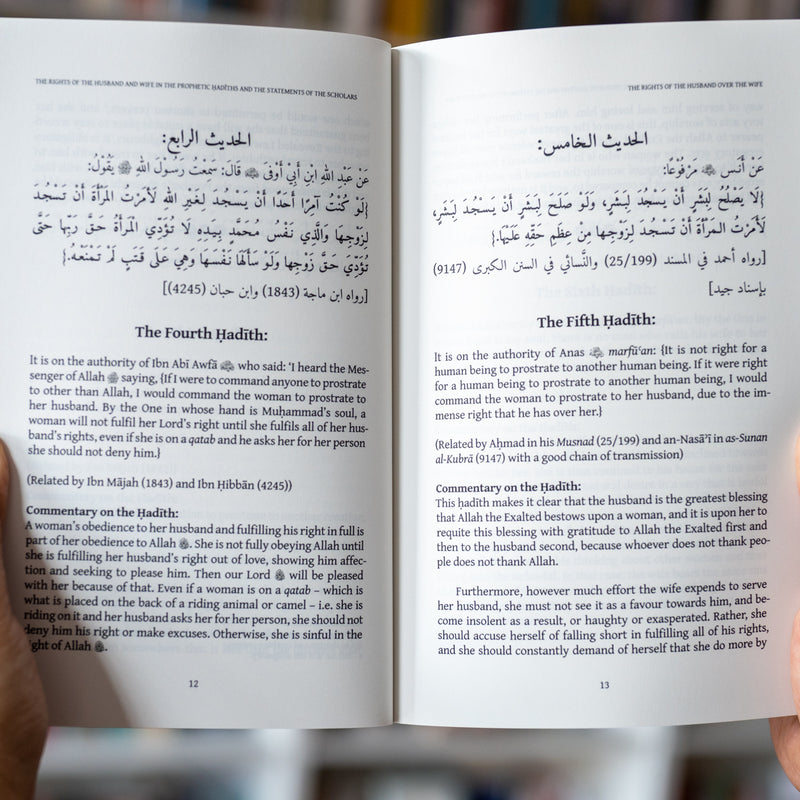 THE RIGHTS OF THE HUSBAND AND WIFE IN THE PROPHETIC ḤADĪTHS AND THE STATEMENTS OF THE SCHOLARS
الحديث الرابع:
عَنْ عَبْدِ اللهِ ابْنِ أَبِي أَوْفَى ﷺ قَالَ: سَمِعْتُ رَسُولَ اللهِ ﷺ يَقُولُ:
{لَوْ كُنْتُ آمِرًا أَحَدًا أَنْ يَسْجُدَ لِغَيْرِ اللهِ لَأَمَرْتُ الْمَرْأَةَ أَنْ تَسْجُدَ
لِزَوْجِهَا وَالَّذِي نَفْسُ مُحَمَّدٍ بِيَدِهِ لَا تُؤَدِّي الْمَرْأَةُ حَقَّ رَبِّهَا حَتَّى
تُؤَدِّيَ حَقَّ زَوْجِهَا وَلَوْ سَأَلَهَا نَفْسَهَا وَهِيَ عَلَى قَتَبٍ لَمْ تَمْنَعْهُ.}
[رواه ابن ماجة (1843) وابن حبان (4245)]
The Fourth Ḥadīth:
It is on the authority of Ibn Abī Awfā who said: ‘I heard the Mes-
senger of Allah ﷺ saying, {If I were to command anyone to prostrate
to other than Allah, I would command the woman to prostrate to
her husband. By the One in whose hand is Muḥammad’s soul, a
woman will not fulfil her Lord’s right until she fulfils all of her hus-
band’s rights, even if she is on a qatab and he asks her for her person
she should not deny him.}
(Related by Ibn Mājah (1843) and Ibn Ḥibbān (4245))
Commentary on the Ḥadīth:
A woman’s obedience to her husband and fulfilling his right in full is
part of her obedience to Allah. She is not fully obeying Allah until
she is fulfilling her husband’s right out of love, showing him affec-
tion and seeking to please him. Then our Lord will be pleased
with her because of that. Even if a woman is on a qatab – which is
what is placed on the back of a riding animal or camel – i.e. she is
riding on it and her husband asks her for her person, she should not
deny him his right or make excuses. Otherwise, she is sinful in the
ight of Allah.
12
THE RIGHTS OF THE HUSBAND OVER THE WIFE
الحديث الخامس:
عَنْ أَنَسٍ مَرْفُوعًا:
{لَا يَصْلُحُ لِبَشَرٍ أَنْ يَسْجُدَ لِبَشَرٍ، وَلَوْ صَلَحَ لِبَشَرٍ أَنْ يَسْجُدَ لِبَشَرٍ،
لَأَمَرْتُ الْمَرْأَةَ أَنْ تَسْجُدَ لِزَوْجِهَا مِنْ عِظَمِ حَقِّهِ عَلَيْهَا.}
[رواه أحمد في المسند (25/199) والنَّسائي في السنن الكبرى (9147)
بإسناد جيد]
The Fifth Ḥadīth:
It is on the authority of Anas marfūʿan: {It is not right for a
human being to prostrate to another human being. If it were right
for a human being to prostrate to another human being, I would
command the woman to prostrate to her husband, due to the im-
mense right that he has over her.}
(Related by Aḥmad in his Musnad (25/199) and an-Nasāʾī in as-Sunan
al-Kubrā (9147) with a good chain of transmission)
Commentary on the Ḥadīth:
This ḥadīth makes it clear that the husband is the greatest blessing
that Allah the Exalted bestows upon a woman, and it is upon her to
requite this blessing with gratitude to Allah the Exalted first and
then to the husband second, because whoever does not thank peo-
ple does not thank Allah.
Furthermore, however much effort the wife expends to serve
her husband, she must not see it as a favour towards him, and be-
come insolent as a result, or haughty or exasperated. Rather, she
should accuse herself of falling short in fulfilling all of his rights,
and she should constantly demand of herself that she do more by
13